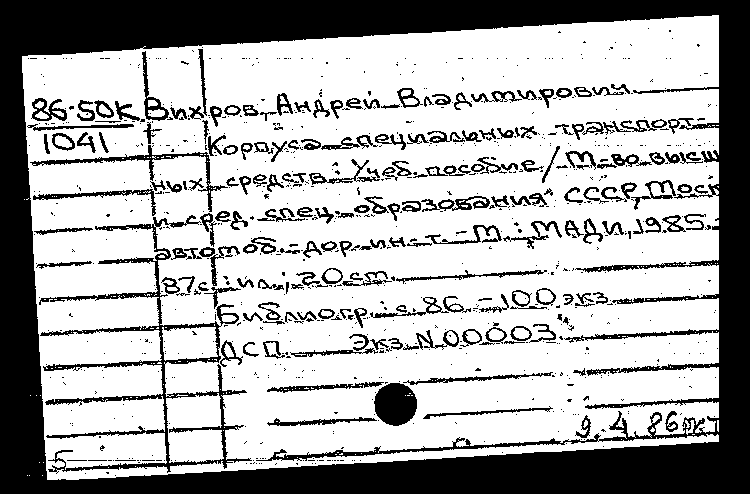 86-50К Вихров, Андрей Владимирович.
1041 Корпуса специальных транспорт-
ных средств: Учеб. пособие / М-во высш
и сред. спец. образования СССР, Моск
автомоб.-дор. ин-т. - М.: МАДИ, 1985.-
87с.: ил.; 20 см.
Библиогр.: с. 86 - 100 экз
ДСП Экз. N 00003
9.4.86
5